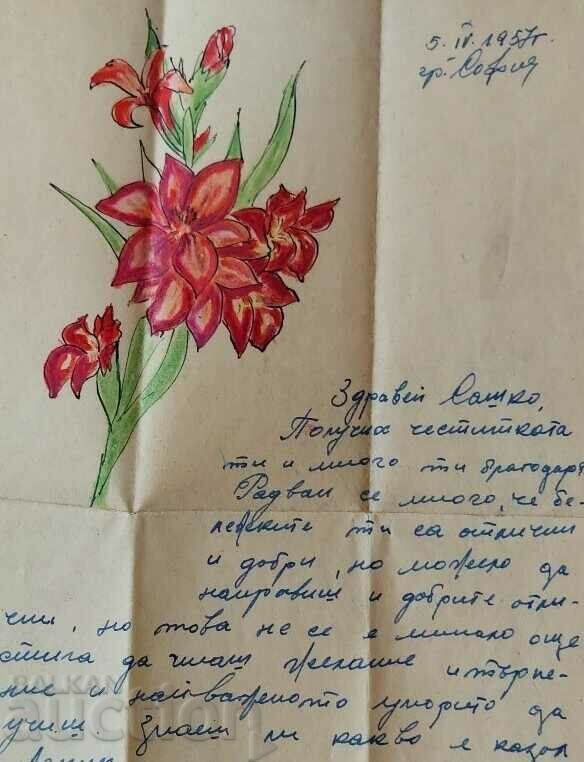 5. IV. 1957 г.
гр. София
Здравей Сашко,
Получих честитката
ти и много ти благодаря
Радвам се много, че бе-
лежките ти са отлични
и добри, но можело да
направиш и добрите отли-
чни, но това не се е минало още
стига да имаш желание и търпе-
ние и най-важното упорито да
учиш. Знаеш ли какво е казал
Ленин
BALKAN
auction